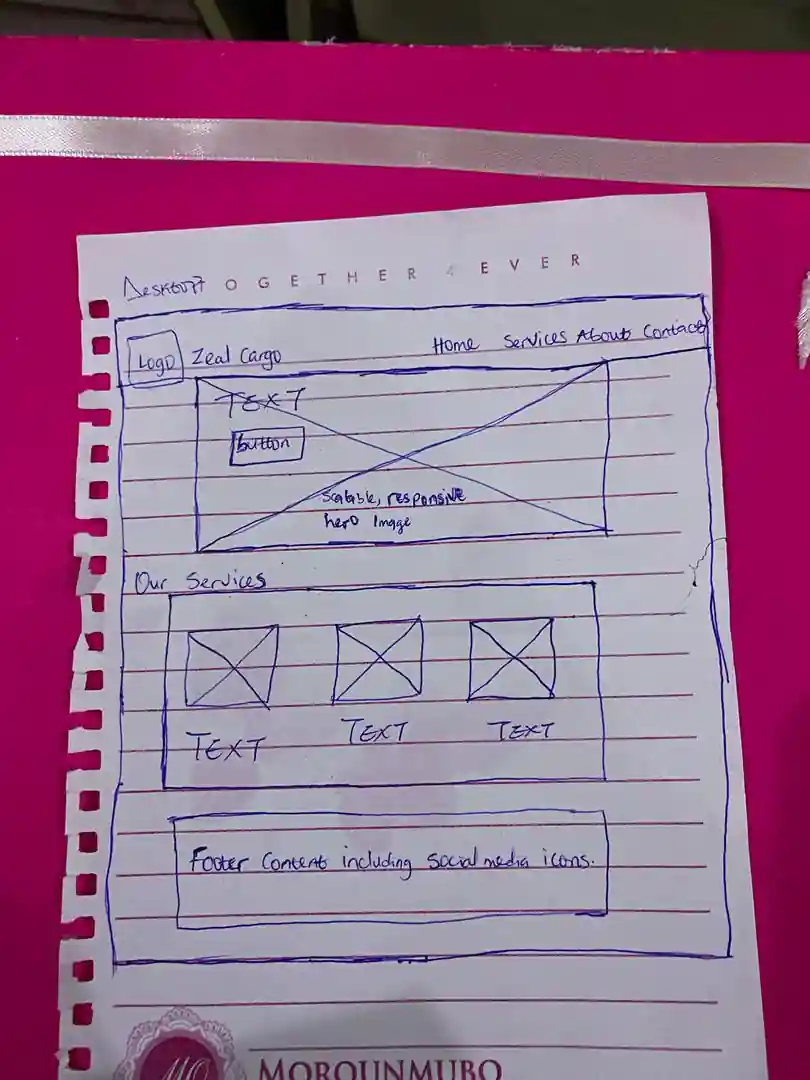 Desktop OGETHER 4 EVER
Logo Zeal Cargo Home Services About Contact
TEXT
button
Scalable, responsive
hero Image
Our Services
TEXT TEXT TEXT
Footer Content including Social media icons.
MO
MOROUNMUBO